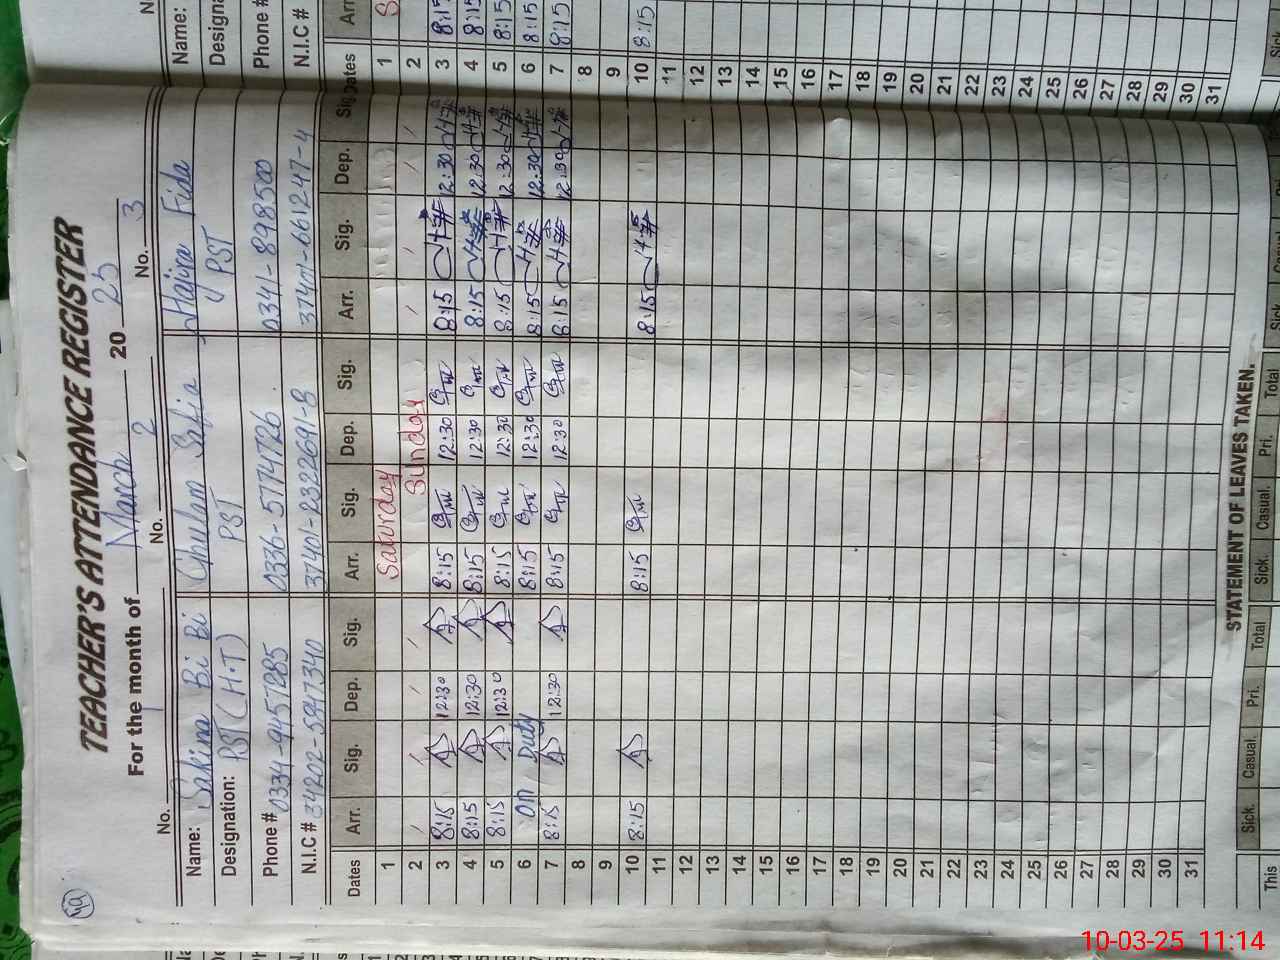 49
TEACHER'S ATTENDANCE REGISTER
For the month of March 20 25
No. 1 No. 2 No. 3
Name: Sakina Bi Bi Ghulam Safia Hajira Fida
Designation: PST (H.T) PST PST
Phone # 0336-5174726 0341-8985500
N.I.C #
Dates Arr. Sig. Dep. Sig. Arr. Sig. Dep. Sig. Arr. Sig. Dep. Sig.
1 Saturday
2 Sunday
3 8:15 12:30 8:15 12:30 8:15 12:30
4 8:15 12:30 8:15 12:30 8:15 12:30
5 8:15 12:30 8:15 12:30 8:15 12:30
6 On Duty 8:15 12:30 8:15 12:30
7 8:15 12:30 8:15 12:30 8:15 12:30
8
9
10 8:15 8:15 8:15
11
12
13
14
15
16
17
18
19
20
21
22
23
24
25
26
27
28
29
30
31
STATEMENT OF LEAVES TAKEN.
This Sick. Casual. Pri. Total Sick. Casual. Pri. Total Sick
Name:
Phone #
N.I.C #
Dates
1
2
3 8:15
4 8:15
5 8:15
6 8:15
7 8:15
8
9
10 8:15
11
12
13
14
15
16
17
18
19
20
21
22
23
24
25
26
27
28
29
30
31
10-03-25 11:14